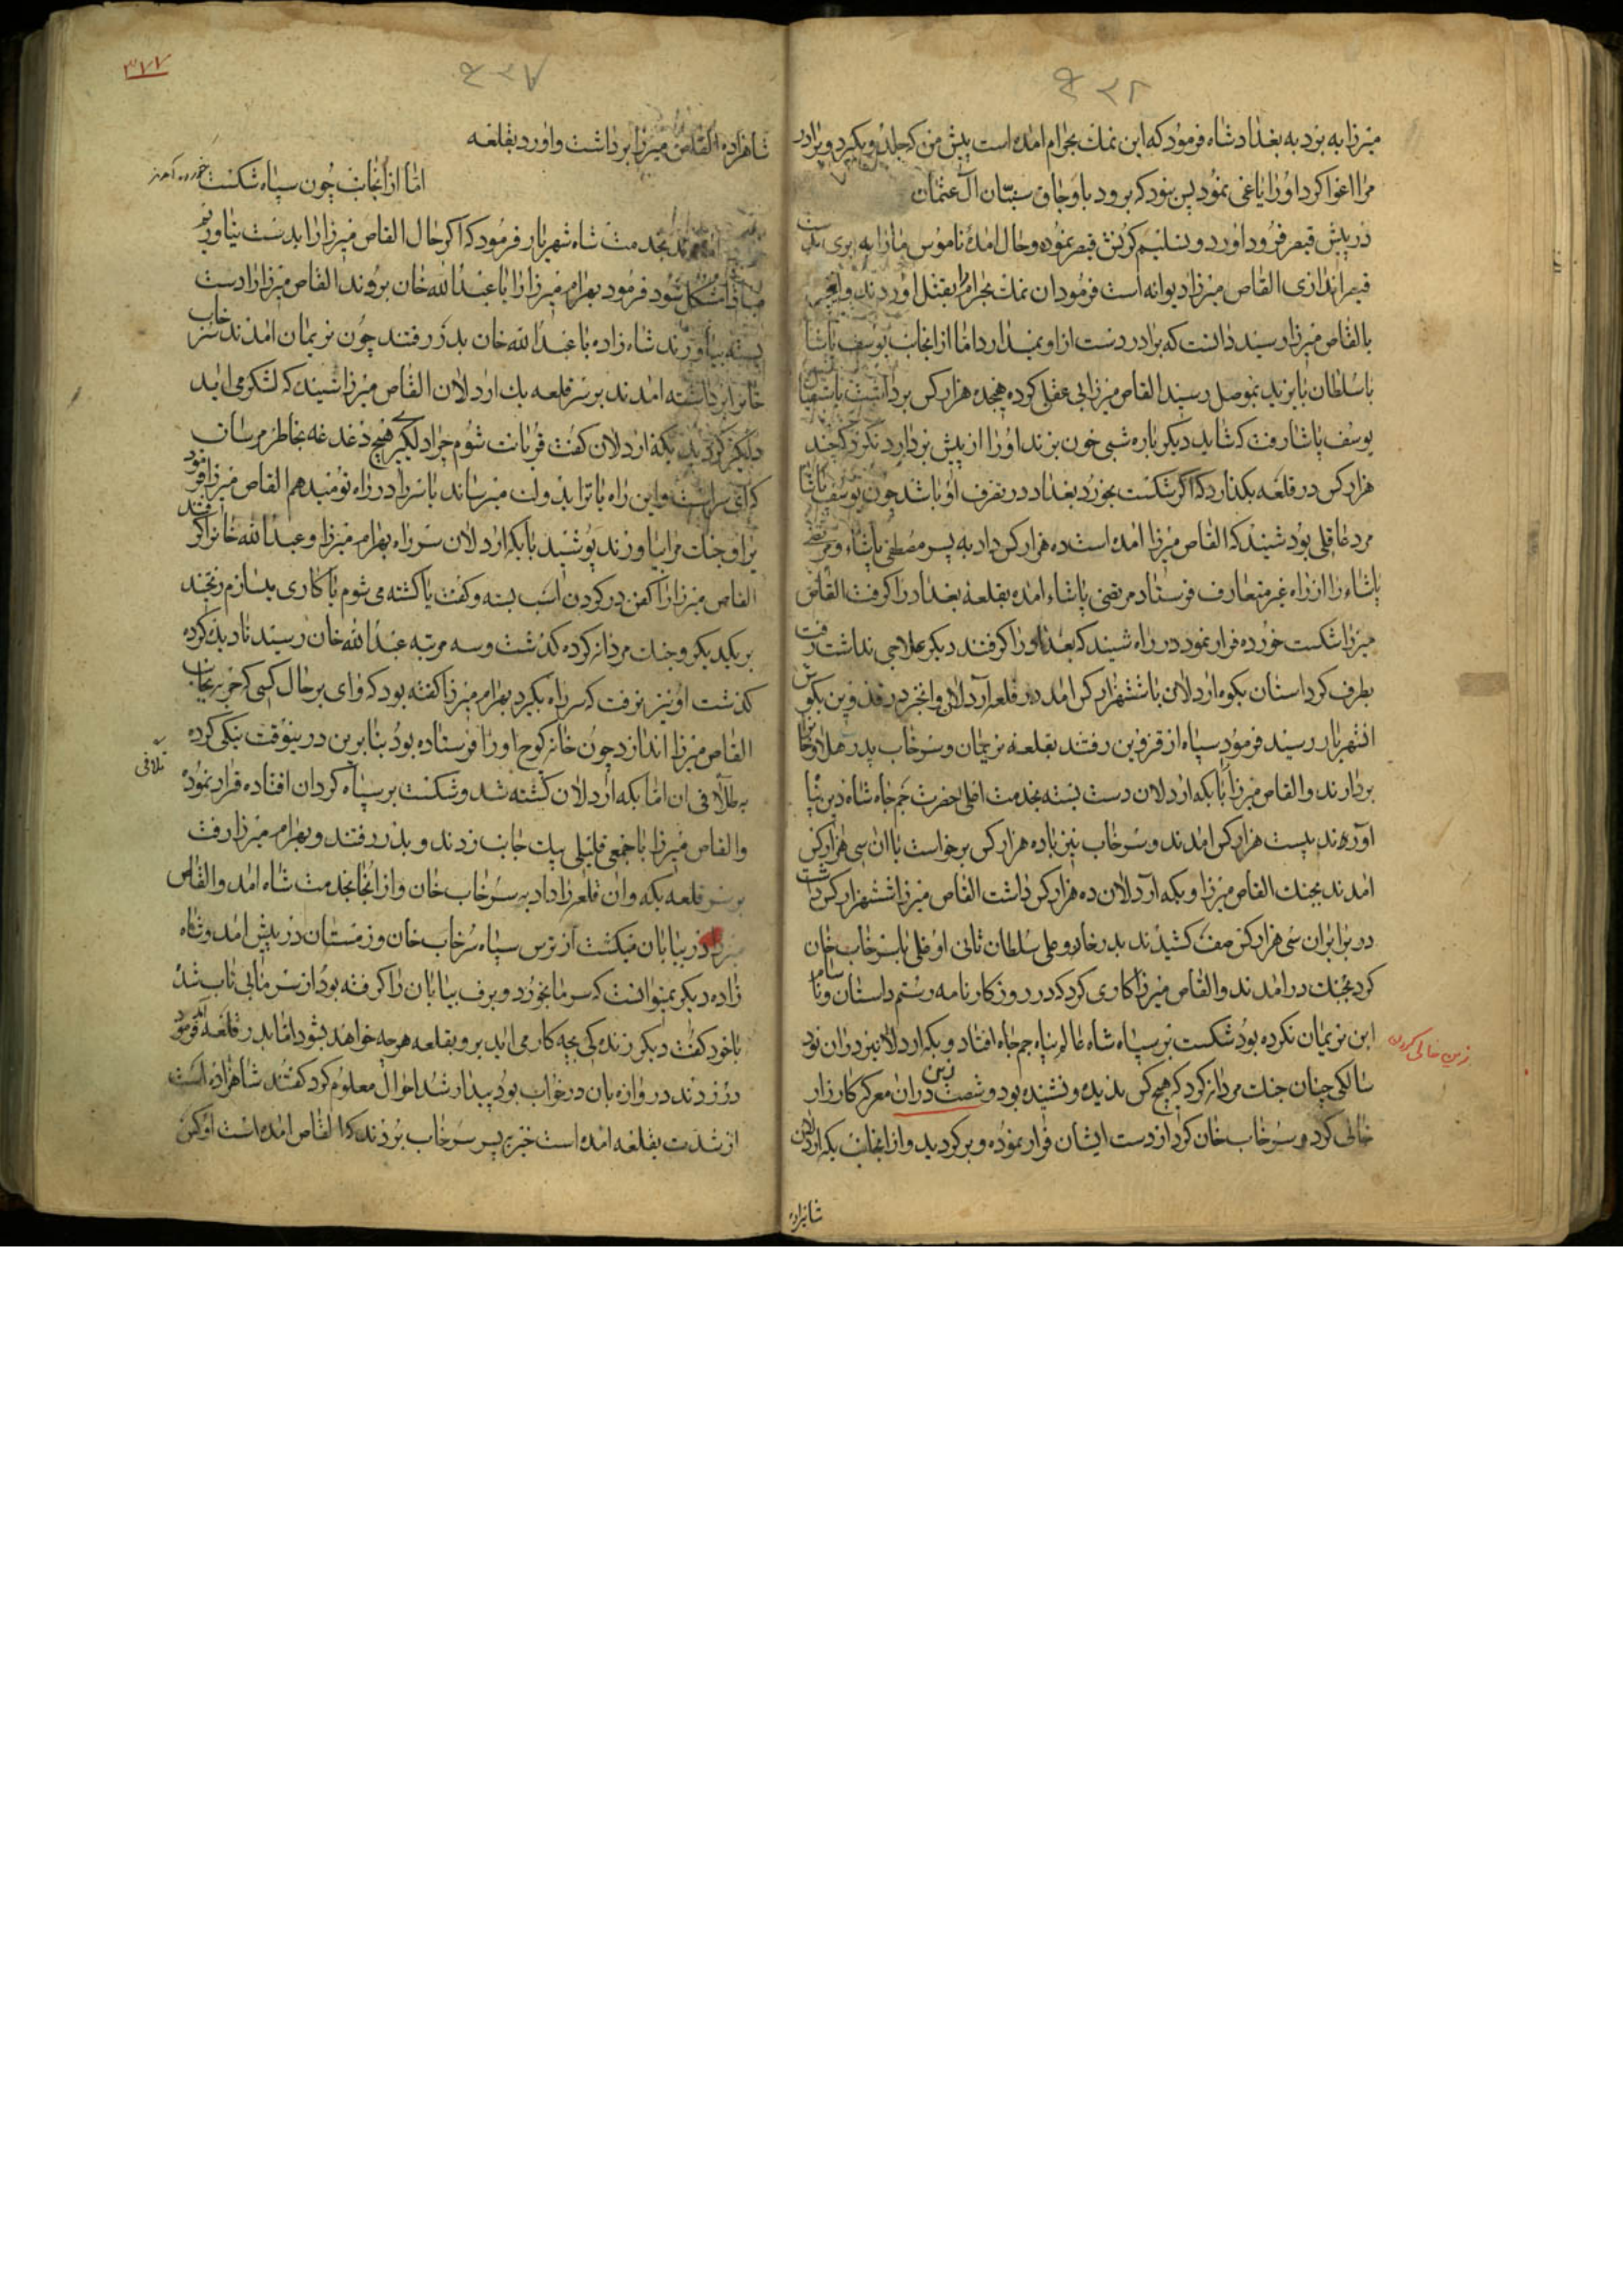 میرزا به برد به بغداد شاه فرمود که این نمك بحرام امده است پیش من که جلد و بکیرد و برادر
مرا اغوا کرد او را یاغی نمود پس بود که برود باوجاق سنیان آل عثمان
در پیش قیصر فرود اورد و تسلیم کرنش قیصر نموده و حال امده ناموس ما را به بری
قیصر اندازی القاص میرزا دیوانه است فرمود ان نمك بحرام را بقتل اوردند و
بالقاص میرزا رسید دانست که برادر دست از او نمیدارد اما از انجانب یوسف پاشا
با سلطان بایزید بموصل رسید القاص میرزا بی عقلی کرده هجده هزار کس برداشت
یوسف پاشا رفت که شاید دیکر باره شبی خون بزند او را از پیش بردارد نکرد که چند
هزار کس در قلعه بکذارد که اکر شکست بخورد بغداد در تصرف او باشد چون یوسف پاشا
مرد عاقلی بود شنید که القاص میرزا امده است ده هزار کس داد به پسر مصطفی پاشاء و مرتضی
پاشاء را از راه غیر متعارف فرستاد مرتضی پاشاء امده بقلعه بغداد را کرفت القاص
میرزا شکست خورده فرار نمود در راه شنید که بغداد را کرفتند دیکر علاجی نداشت رفت
بطرف کردستان بکوه اردلان با ششهزار کس امد در قلعه آردلان و انخبر در قذوین بکوش
انشهریار رسید فرمود سپاه از قزوین رفتند بقلعه نریمان و سرخاب پدر هلاو خانرا
بردارند و القاص میرزا با بکه اردلان دست بسته بخدمت اعلی حضرت جم جاه شاه دین پناه
اورند بیست هزار کس امدند و سرخاب نیز با ده هزار کس برخواست با ان سی هزار کس
امدند بجنك القاص میرزا و بکه آردلان ده هزار کس داشت القاص میرزا ششهزار کس داشت
در برابر ان سی هزار کس صف کشیدند بدرخان و علی سلطان تاتی اوغلی با سرخاب خان
کرد بجنك در امدند و القاص میرزا کاری کرد که در روزکار نامه رستم داستان و سام
ابن نریمان نکرده بود شکست بر سپاه شاه عالم پناه جم جاه افتاد و بکه اردلان نیز دران نود
سالکی چنان جنك مردانه کرد که هیچ کس ندیده و نشنیده بود و شصت زین دران معرکه کارزار
خالی کرد و سرخاب خان کرد از دست ایشان فرار نموده و برکردید و از انجانب بکه اردلان
زین خالی کردن
شاهزاده
۳۷۷
شاهزاده القاص میرزا برداشت و اورد بقلعه
اما از آنجانب چون سپاه شکست خورده آمدند
بخدمت شاه شهریار فرمود که اکر حال القاص میرزا را بدست نیاوریم
مشکل شود فرمود بهرام میرزا را با عبدالله خان بروند القاص میرزا را دست
بسته بیاورند شاه زاده با عبدالله خان بدر رفتند چون نریمان امدند سرخاب
خانرا برداشته امدند بر سر قلعه بك اردلان القاص میرزا شنید که لشکر می اید
دلکیر کردید بکه اردلان کفت قربانت شوم چرا دلکیری هیچ دغدغه بخاطر مرسان
که این سراست و این راه یا ترا بدولت میرساند یا سر را در راه تو میدهم القاص میرزا فرمود
یراق جنك مرا بیاورند پوشید با بکه اردلان سر راه بهرام میرزا و عبدالله خانرا کرفتند
القاص میرزا را کفن در کردن اسب بسته و کفت یا کشته می شوم یا کاری بسازم ریختند
بریکدیکر و جنك مردانه کرده کذشت و سه مرتبه عبدالله خان رسید نادیده کرده
کذشت او نیز نرفت که سر راه بکیرد بهرام میرزا کفته بود که وای بر حال کسی که حربه بجانب
القاص میرزا اندازد چون خانه کوچ اورا فرستاده بود بنابرین درینوقت نیکی کرده
به طلافی ان اما بکه اردلان کشته شد و شکست بر سپاه کردان افتاده قرار نموده
تلافی
والقاص میرزا با جمعی قلیلی بیك جانب زدند و بدر رفتند و بهرام میرزا رفت
بر سر قلعه بکه و ان قلعه را داد به سرخاب خان و از انجا بخدمت شاه امد والقاص
میرزا در بیابان میکشت از ترس سپاه سرخاب خان و زمستان در پیش امد و شاه
زاده دیکر نمیتوانست که سرما بخورد و برف بیابان را کرفته بود از سرما بی تاب شد
با خود کفت دیکر زنده کی بچه کار می اید برو بقلعه هر چه خواهد بشود اما بدر قلعه آمد فرمود
در زدند دروازه بان در خواب بود بیدار شد احوال معلوم کرد کفتند شاهزاده است
از شدت بقلعه امده است خبر به پسر سرخاب بردند که القاص امده است او کس